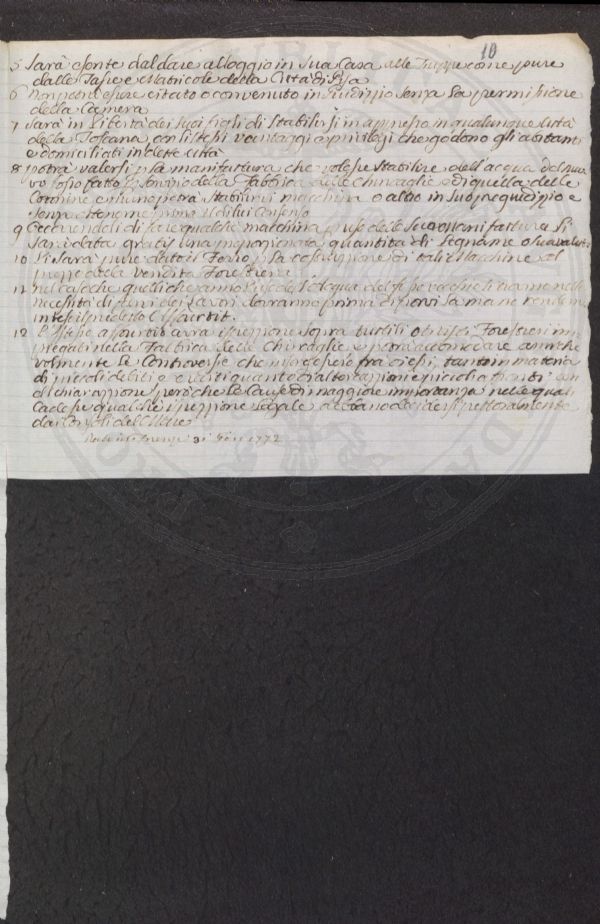 10
5 Sarà esente dal dare alloggio in sua Casa alle Truppe come pure
dalle Tasse e Matricole della Città di Pisa
6 Non potrà essere citato o convenuto in Giudizzio senza la permissione
della Camera
7 Sarà in libertà dei suoi figli di stabilirsi in appresso in qualunque città
della Toscana con li stessi vantaggi e privilegi che godono gli abitanti
e domiciliati in dette città
8 potrà valersi p la manifattura che volesse stabilire dell'acqua del nuo
vo fosso fatto in servizio della Fabbrica delle chincaglie e di quella delle
Cotonine e niuno potrà stabilirvi macchina o altro in suo pregiudizzio e
senza ottenerne prima il di lui consenso
9 di fare qualche macchina p uso delle sue manifatture li
sarà data gratis una proporzionata quantità di legname o sua valuta
10 Li sarà pure dato il Ferro p la costruzzione di tali Macchine al
prezzo della vendita Forestiera
11 nel caso che quelli che anno l'uso dell'Acqua del fosso
necessità di dei Lavori dovranno prima di porvi la mano renderne
inteso il predetto
12 Lo stesso avrà ispezzione sopra tutti li Forestieri im
piegati nella Fabbrica delle Chincaglie e potrà accomodare amiche
volmente le Controversie che insorgessero fra di essi, tanto in materia
di piccoli debiti e crediti quanto di altercazzioni e piccoli affronti con
dichiarazzione però che le Cause di maggiore importanza nelle quali
cadesse qualche ispezzione legale debbano decidersi
dai Consoli del Mare
31 1772